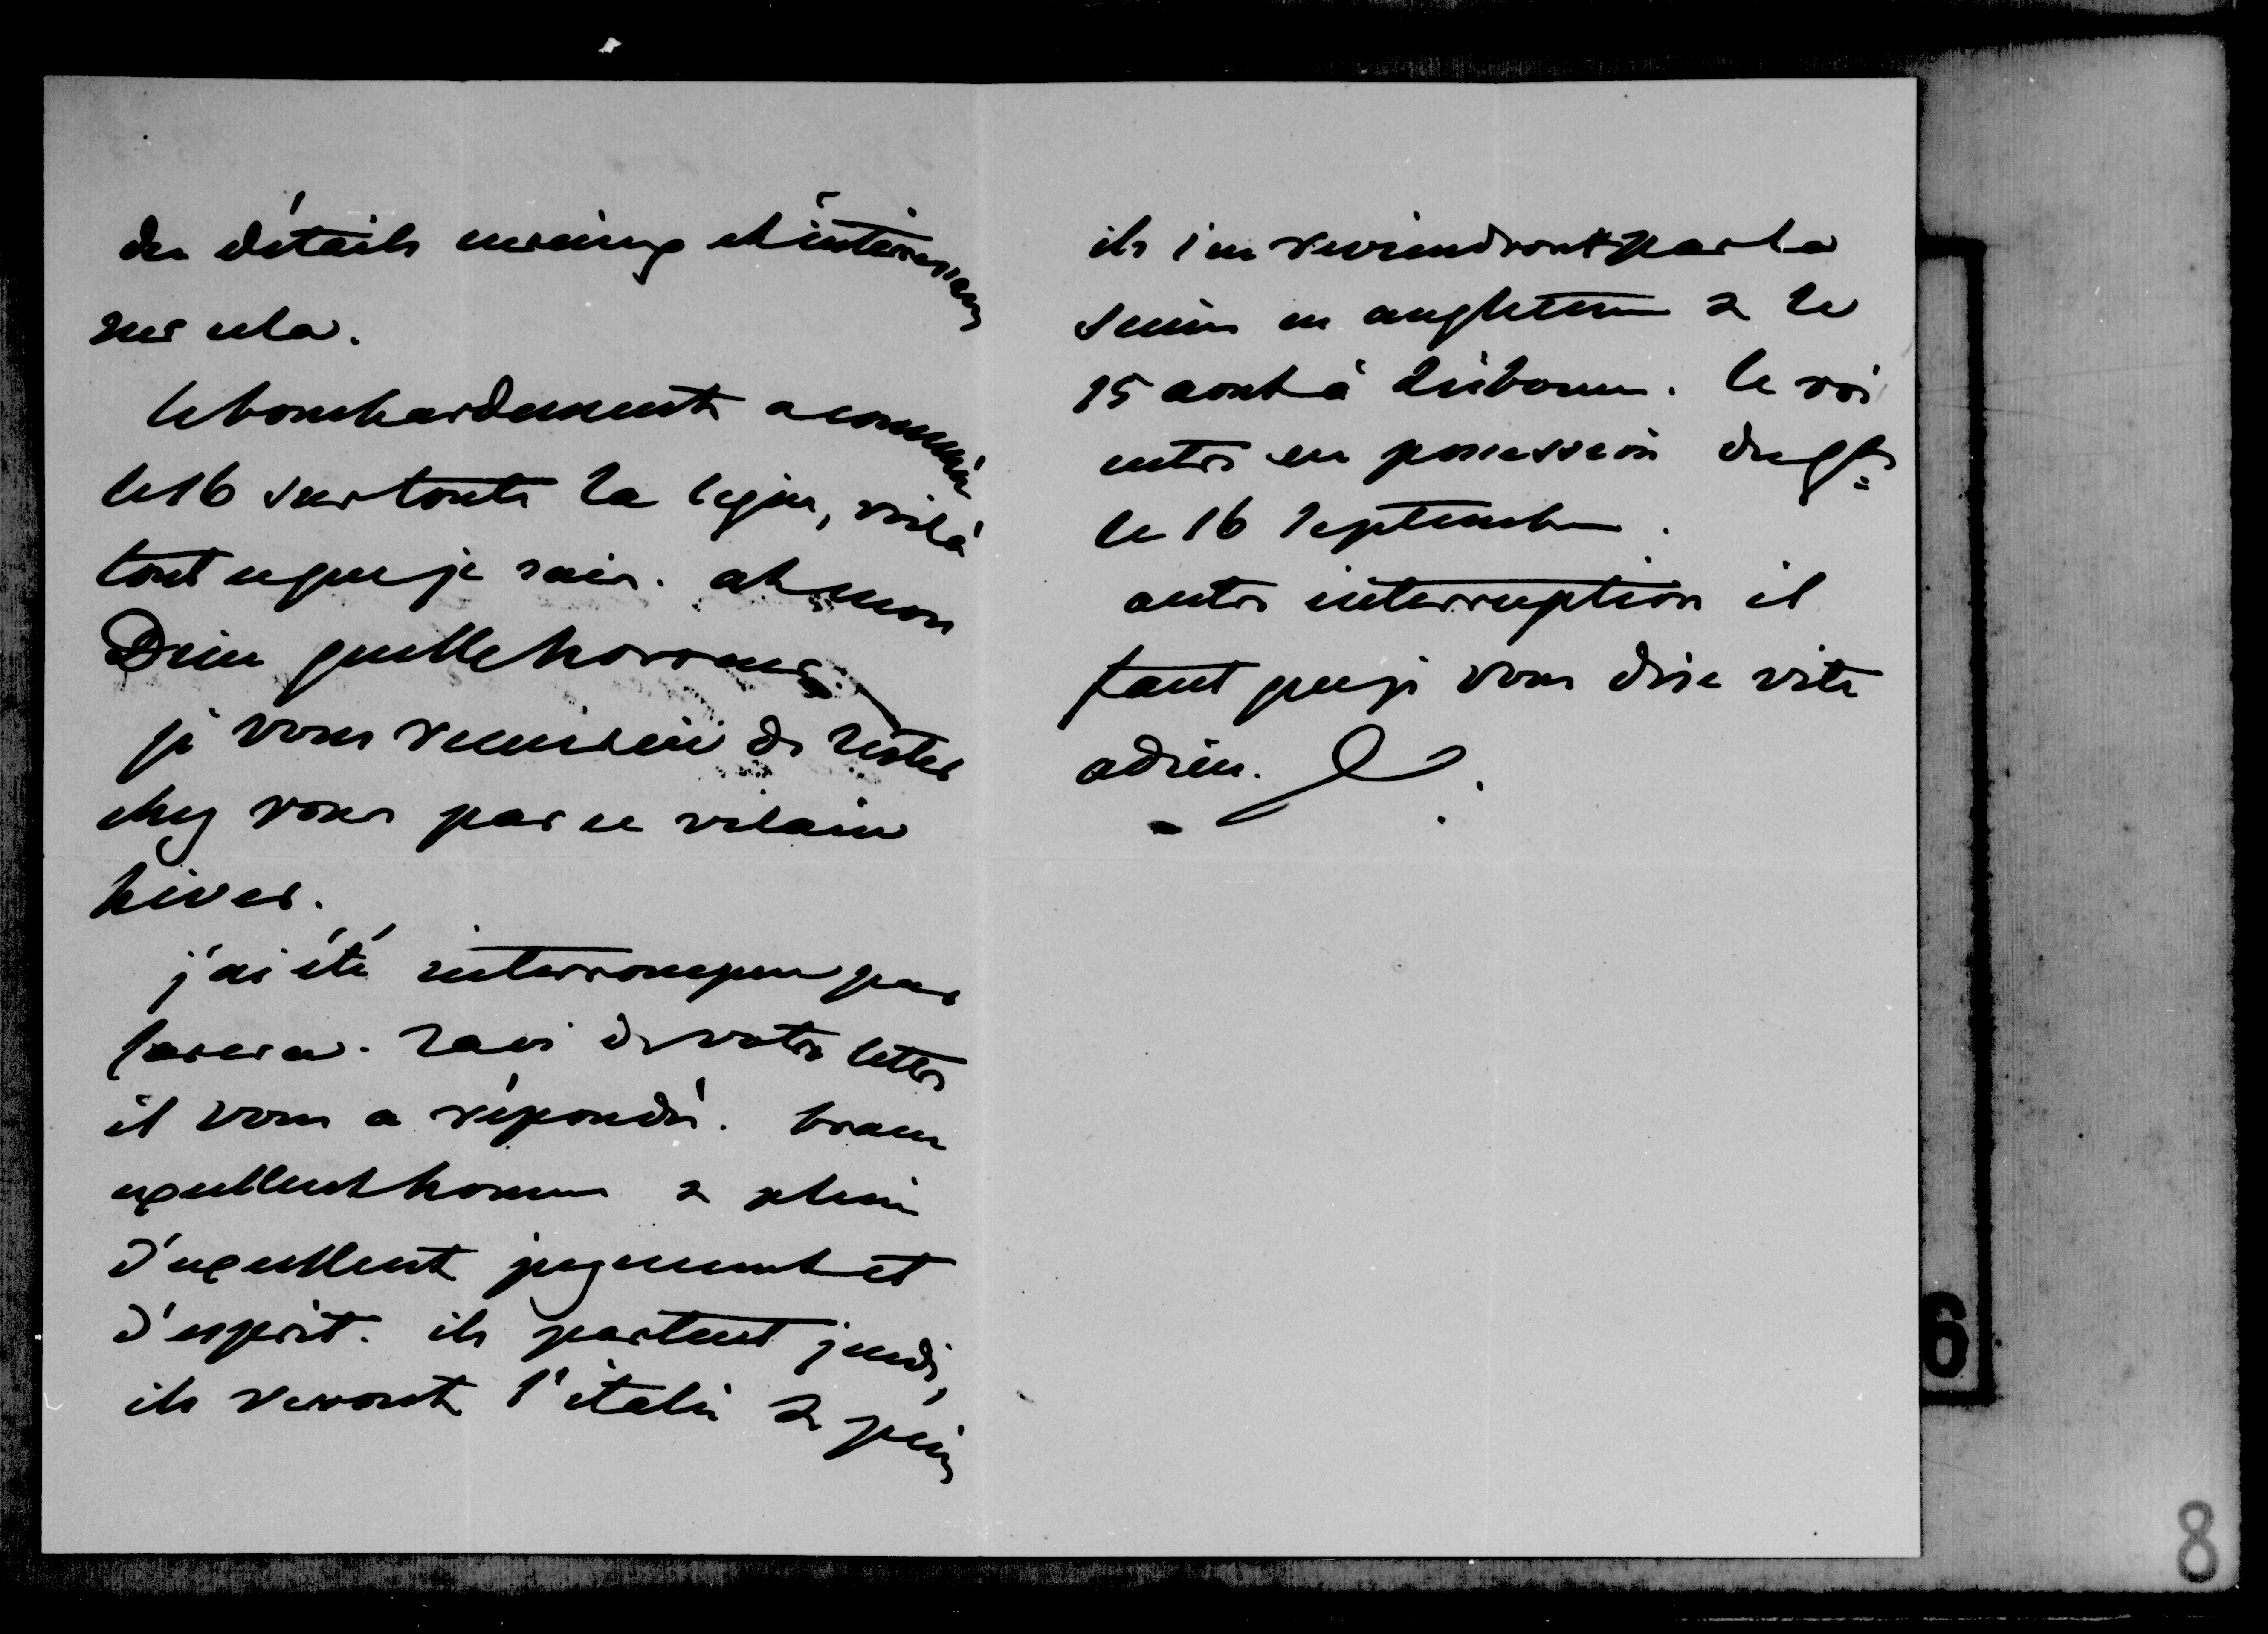 des détails curieux et intéressans
sur cela.
le bombardement a commencé
le 16 sur toute la ligne, voilà
tout ce que je sais. ah mon
Dieu quelle horreur.
je vous remercie de rester
chez vous par ce vilain
hiver.
j'ai été interrompu par
. ravi de votre lettre
il vous a répondu. brave
excellent homme & plein
d'excellent jugement et
d'esprit. ils partent jeudi,
ils verront l'italie & puis
ils s'en reviendront par la
Suisse en angleterre & le
15 aout à Lisbonne. le roi
entre en possession du gt=
le 16 Septembre.
autre interruption il
faut que je vous dise vite
adieu.
6
8